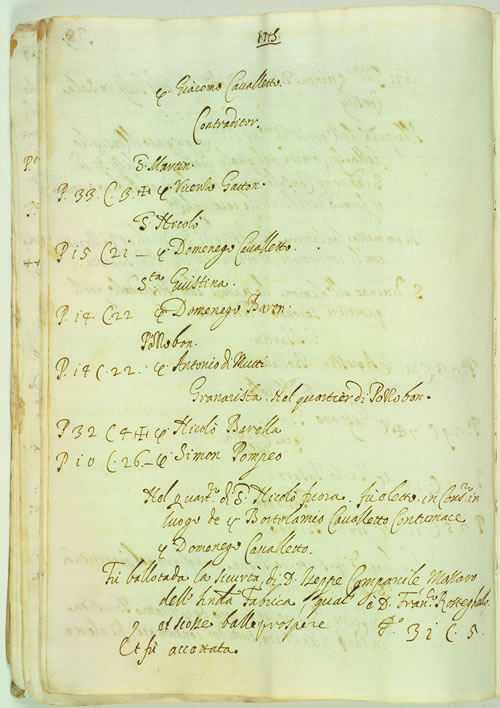 1715.
ɋ Giacomo Cavalletto.
Contraditor.
S. Martin.
P. 33 C. 3 ɋ Vicenzo Gatton.
S. Nicolò
P 15 C 21 — ɋ Domenego Cavalletto.
S.ta Giustina.
P. 14 C 22 ɋ Domenego Baron.
Pollobon.
P. 18 C. 22. ɋ Antonio di Mutti
Granarista. Nel quartier di Pollobon.
P 32 C 4 ɋ Nicolò Barella
P 10 C. 26. — ɋ Simon Pompeo
Nel quart.r di S. Nicolò fuora, fù eletto in
luogo de ɋ Bortolamio Cavalletto Contumace
ɋ Domenego Cavalletto.
Fù ballotada la sicurtà di D. Zeppe Campanile Massaro
dell' Fabrica, qual è D. Fran.co
et scosse balle prospere P. 31 C. 5.
Et fù accettata.